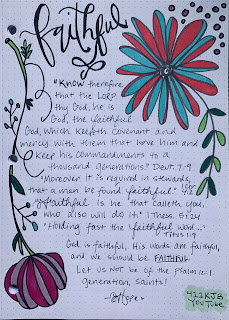 faithful
"Know therefore
that the LORD
thy God, he is
God, the faithful
God, which keepeth covenant and
mercy with them that love him and
keep his commandments to a
thousand generations." Deut. 7:9
"Moreover it is required in stewards,
that a man be found faithful." 1 Cor. 4:2
"Faithful is he that calleth you,
who also will do it." 1 Thess. 5:24
"Holding fast the faithful word..."
Titus 1:9
God is faithful, His words are faithful,
and we should be FAITHFUL.
Let us not be of the psalm 12:1
generation, saints!
Hope
KJB
YouTube